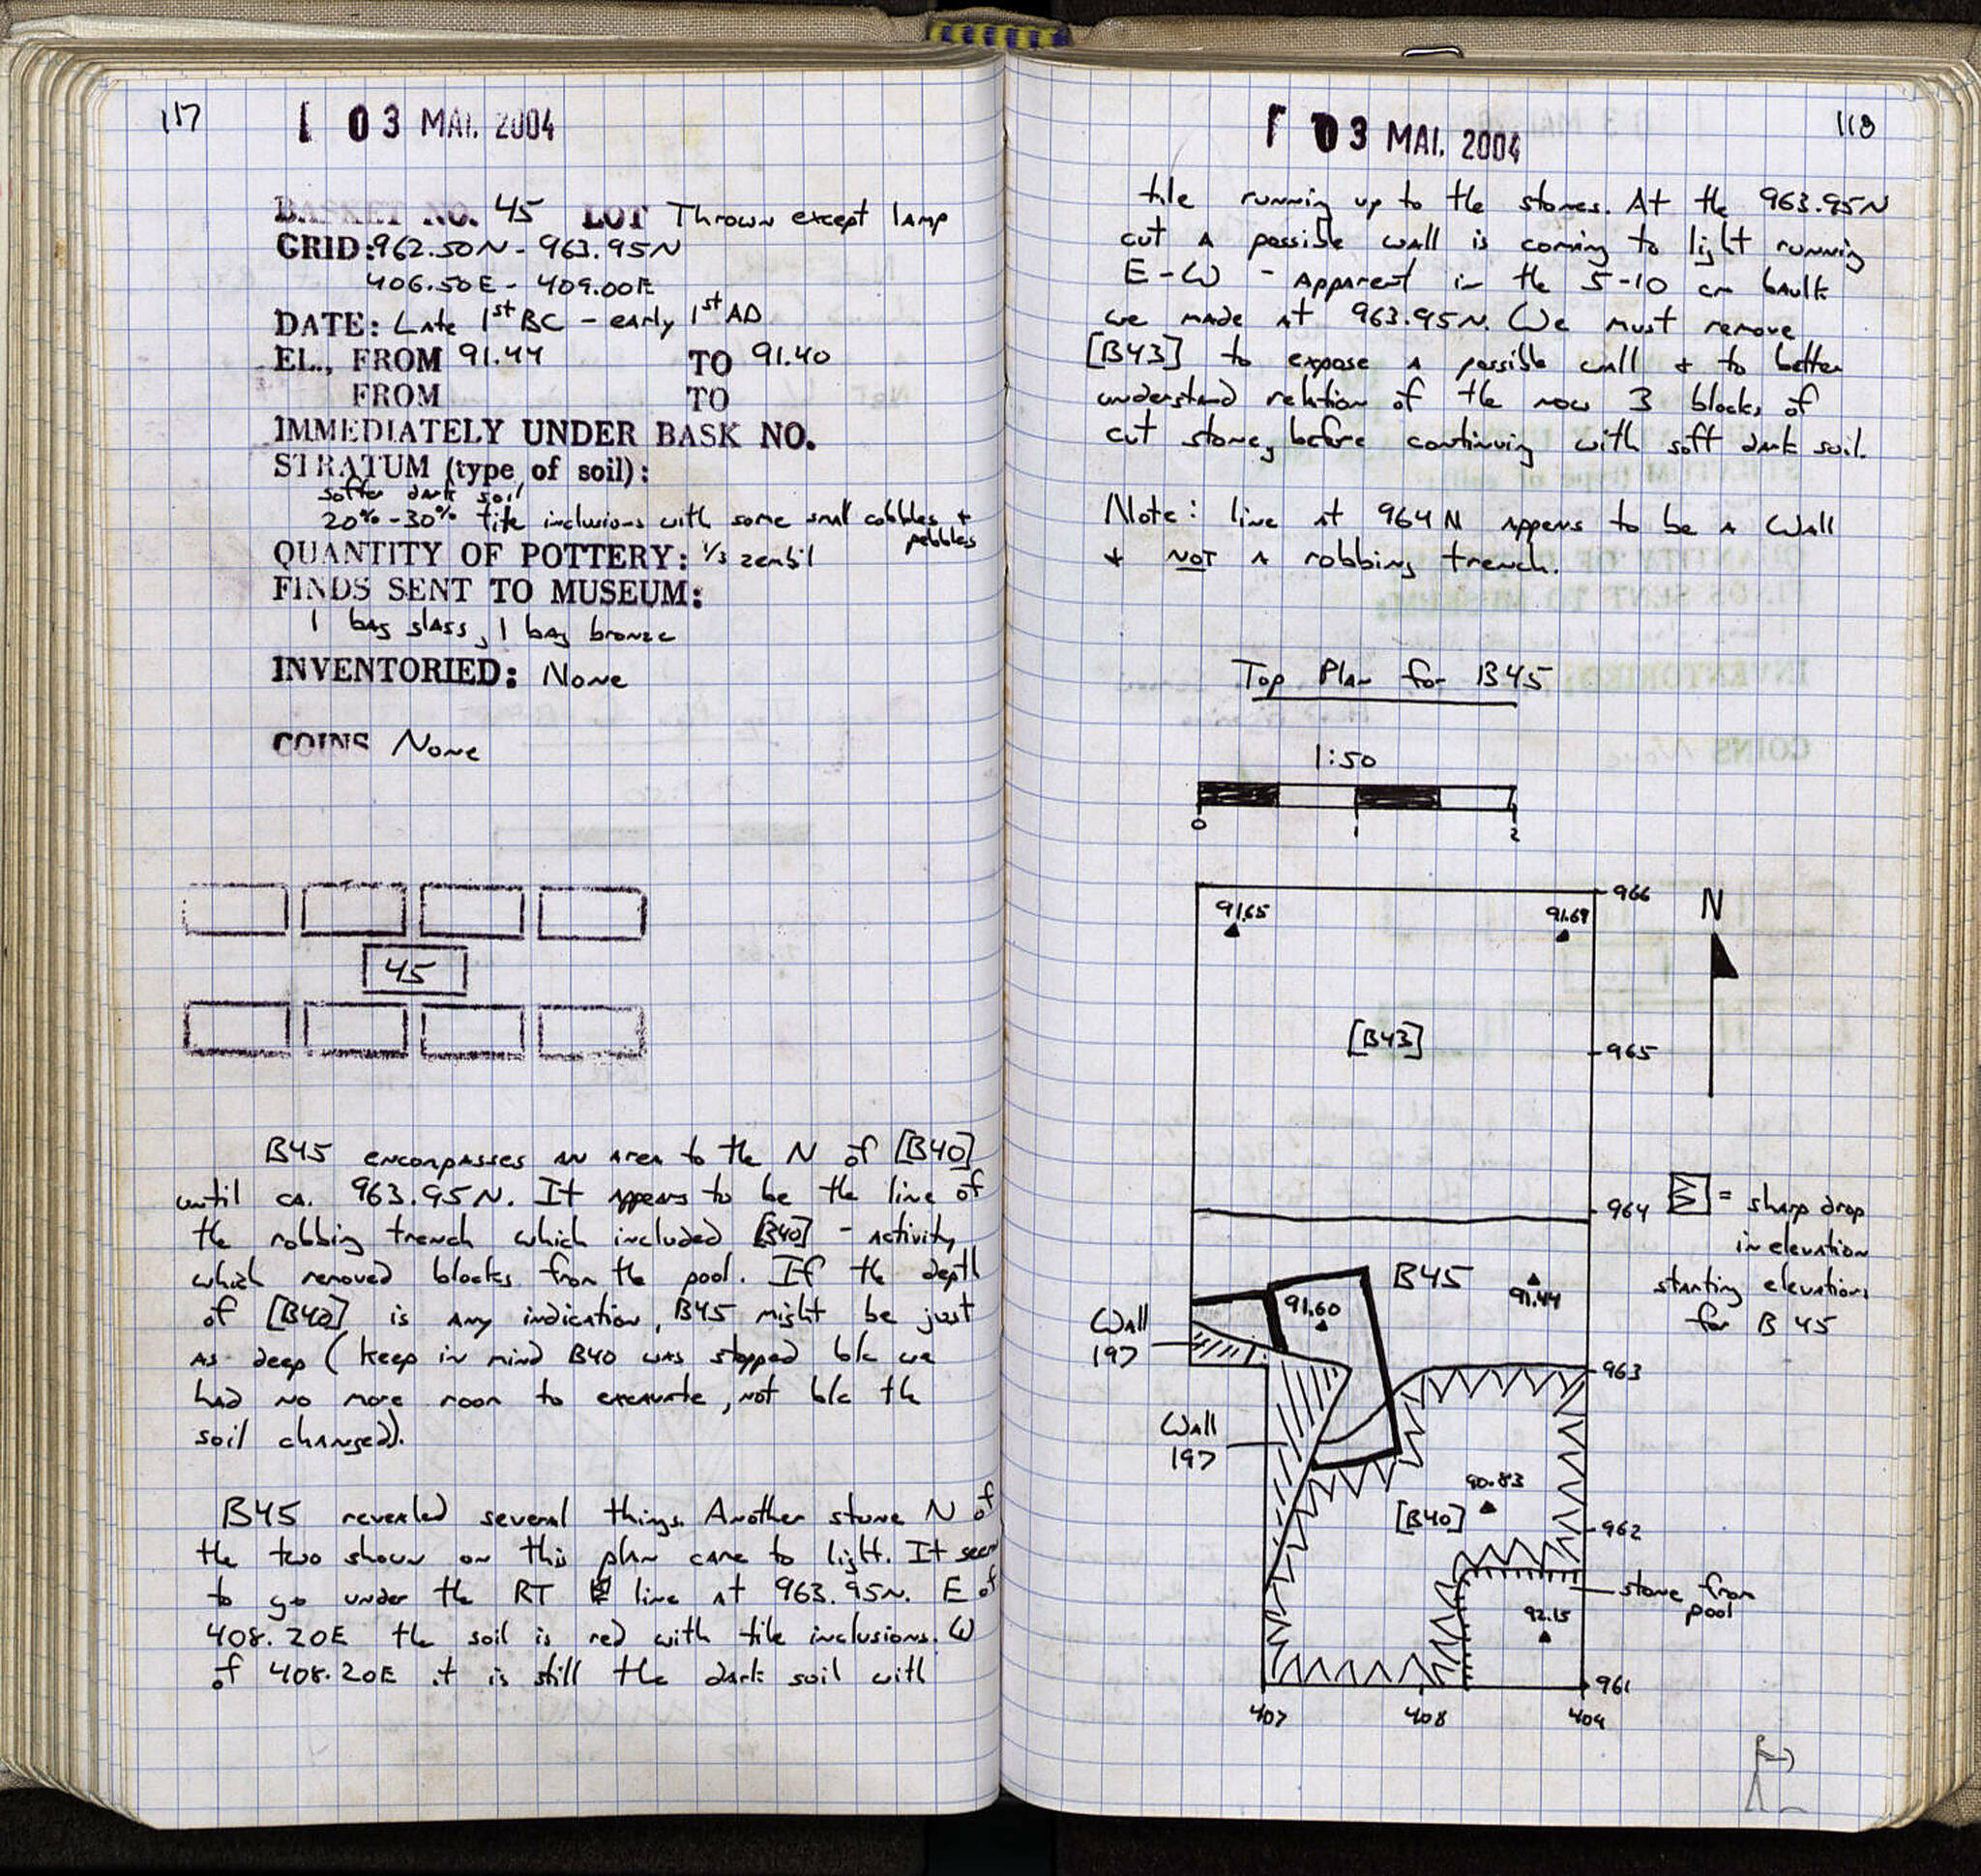 117
03 MAI. 2004
BASKET NO. 45 LOT Thrown except lamp
GRID: 962.50N - 963.95N
406.50E - 409.00E
DATE: Late 1st BC - early 1st AD
EL., FROM 91.44 TO 91.40
FROM TO
IMMEDIATELY UNDER BASK NO.
STRATUM (type of soil):
softer dark soil
20% - 30% tile inclusions with some small cobbles + pebbles
QUANTITY OF POTTERY: 1/3 zembil
FINDS SENT TO MUSEUM:
1 bag glass, 1 bag bronze
INVENTORIED: None
COINS None
45
B45 encompasses an area to the N of [B40]
until ca. 963.95N. It appears to be the line of
the robbing trench which included [B40] - activity
which removed blocks from the pool. If the depth
of [B40] is any indication, B45 might be just
as deep (keep in mind B40 was stopped b/c we
had no more room to excavate, not b/c the
soil changed).
B45 revealed several things. Another stone N of
the two shown on this plan came to light. It seems
to go under the RT line at 963.95N. E of
408.20E the soil is red with tile inclusions. W
of 408.20E it is still the dark soil with
03 MAI. 2004
118
tile running up to the stones. At the 963.95N
cut a possible wall is coming to light running
E-W - Apparent in the 5-10 cm baulk
we made at 963.95N. We must remove
[B43] to expose a possible wall + to better
understand relation of the now 3 blocks of
cut stone, before continuing with soft dark soil.
Note: line at 964N appears to be a Wall
+ NOT a robbing trench.
Top Plan for B45
1:50
0 1 2
966
91.65
91.69
N
[B43]
965
964
= sharp drop
in elevation
starting elevations
for B45
B45
91.44
91.60
Wall
197
963
Wall
197
90.83
[B40]
962
stone from
pool
92.15
961
407 408 409